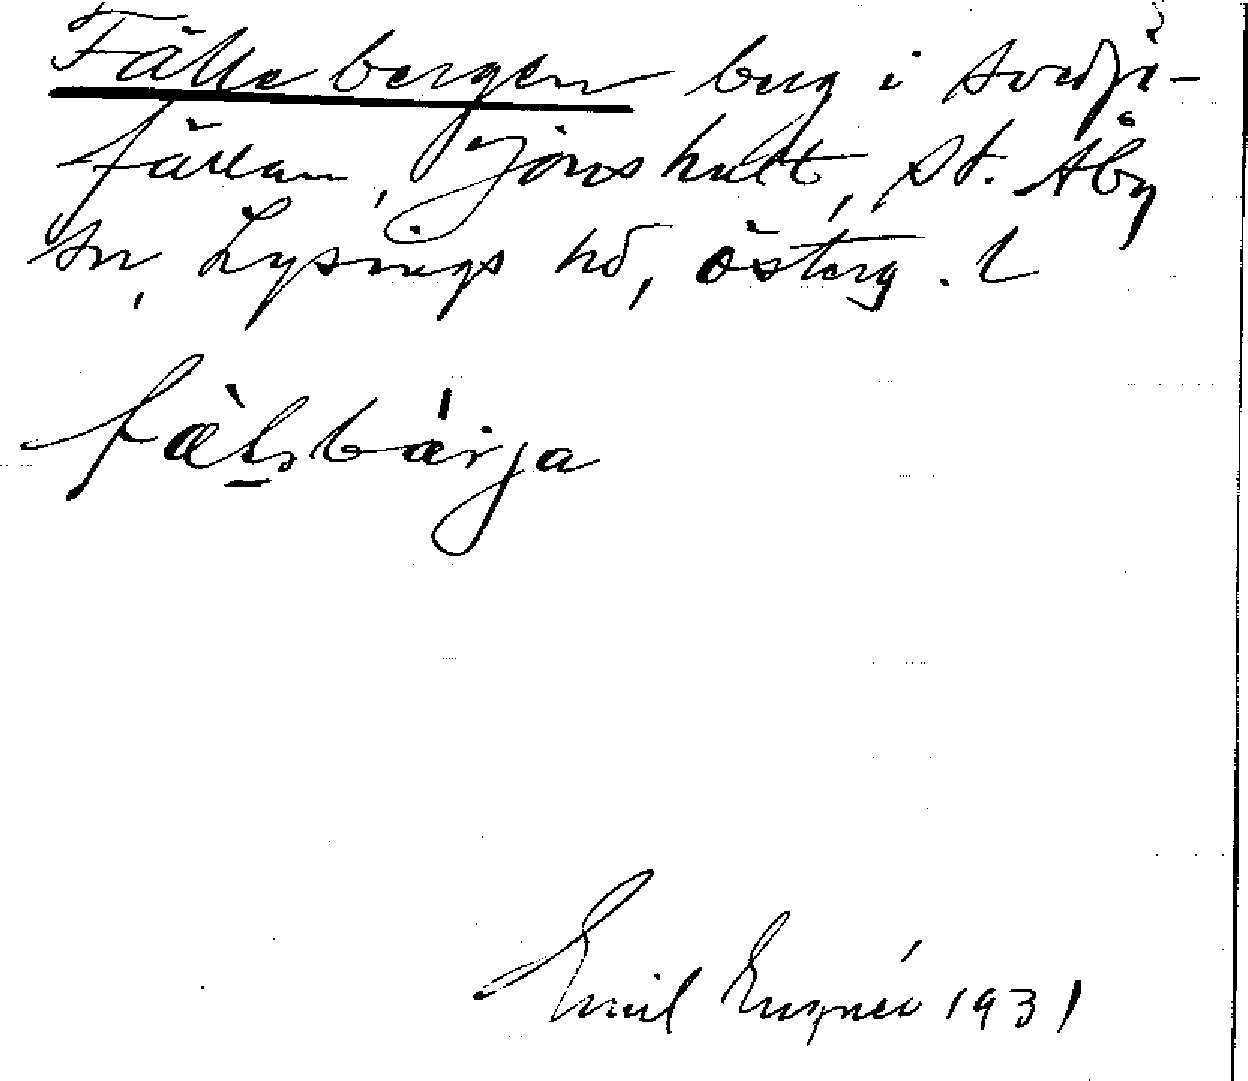 Fällebergen berg i Svedje-
fällan, Jonshult, St. Åby
sn, Lysings hd, Österg. L
fälsbärja
Emil 1931